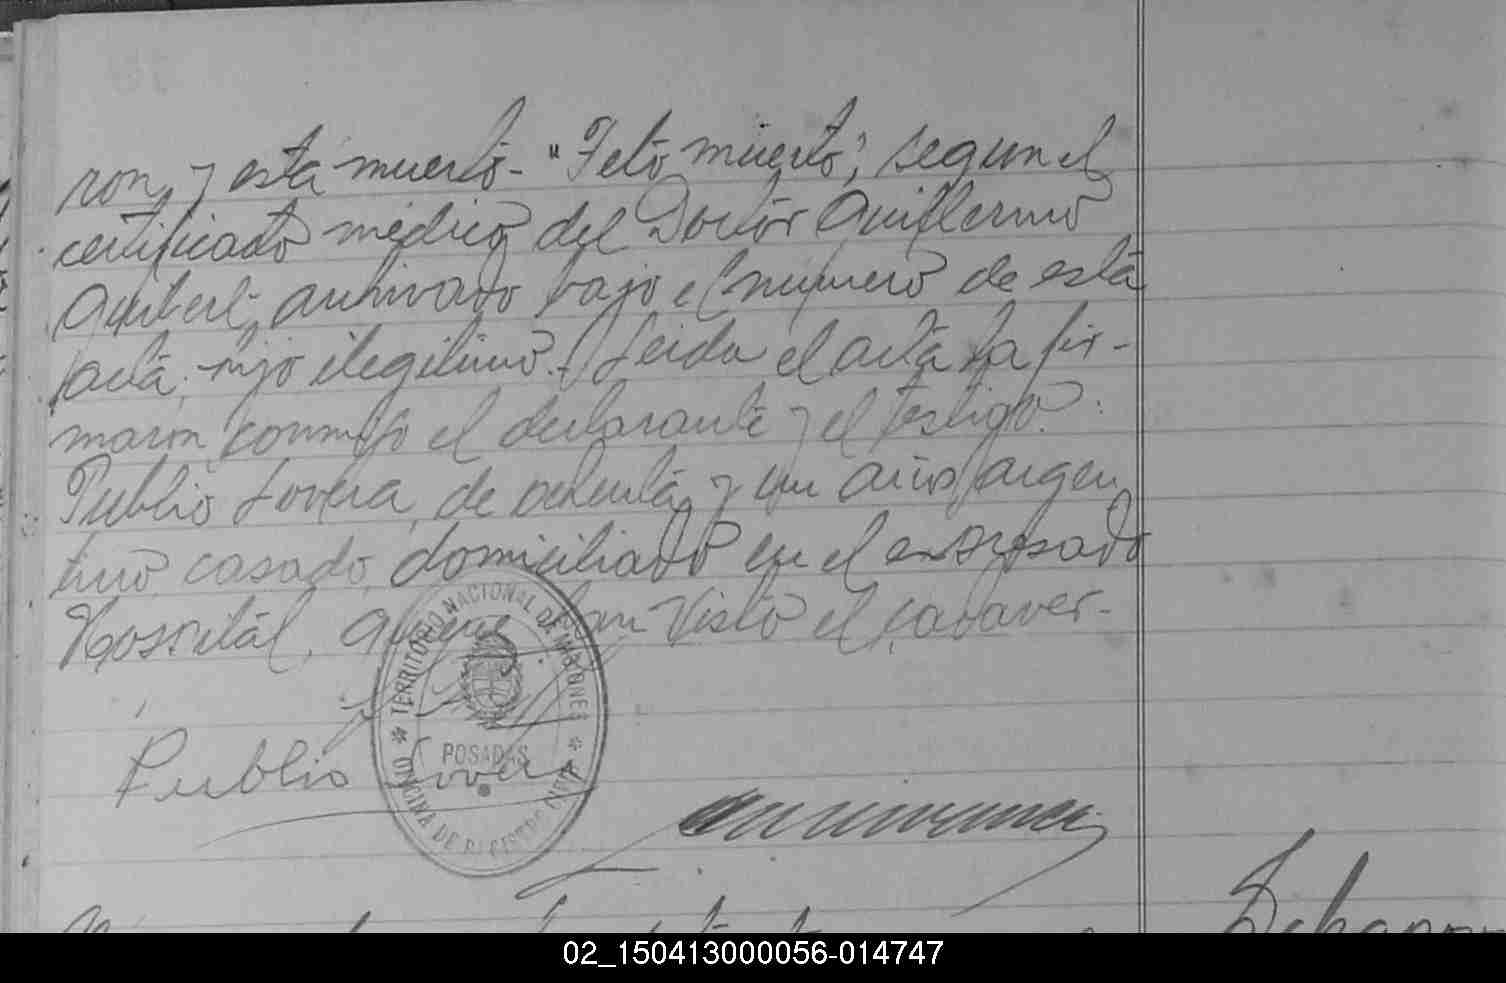 ron, y está muerto - "Feto muerto", segun el
certificado médico, del Doctor Guillermo
archivado bajo el número de esta
acta. hijo ilegitimo. - Leida el acta la fir-
maron conmigo el declarante y el testigo:
Publio Lovera, de y un años argen
tino, casado, domiciliado en el expresado
Hospital, quienes han visto el cadaver -
TERRITORIO NACIONAL DE MISIONES
POSADAS
OFICINA DE REGISTRO CIVIL
Publio Lovera
02_150413000056-014747